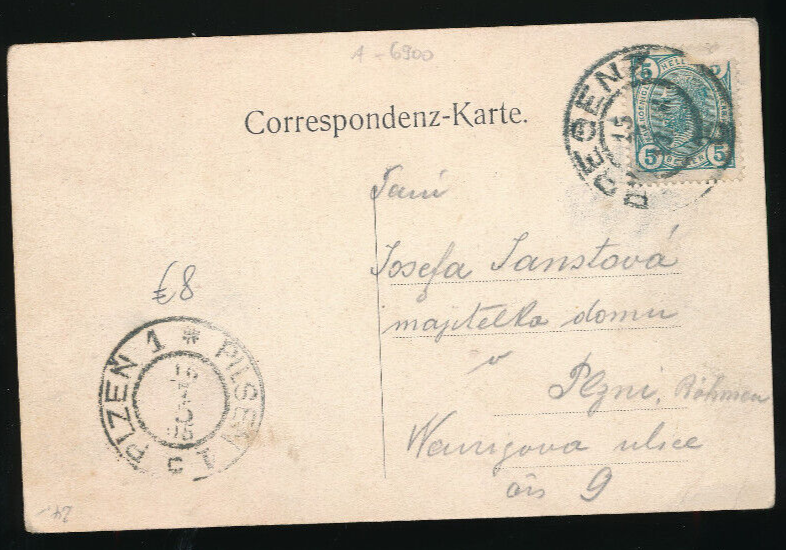 A-6900
Correspondenz-Karte.
BREGENZ
15
5 HELLER 5
5 5
Paní
Josefa Janstová
majitelka domu
v
Plzni, Böhmen
ulice
čís 9
€8
PLZEN 1 * PILSEN 1
24.-